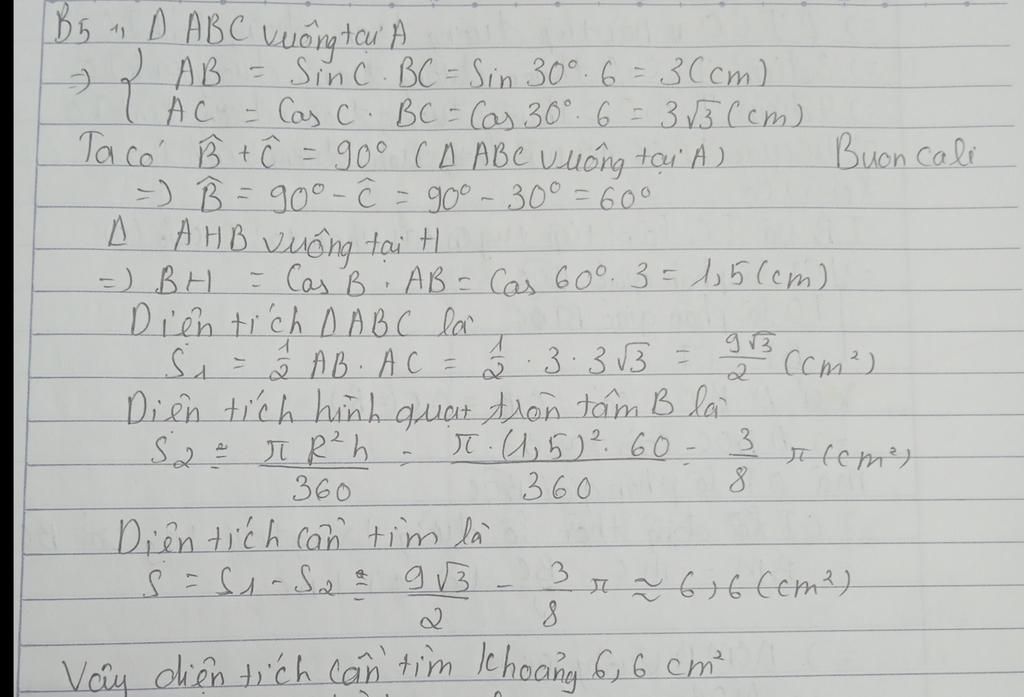 B5 1, Δ ABC vuông tại A
=> { AB = Sin C . BC = Sin 30° . 6 = 3 (cm)
AC = Cos C . BC = Cos 30° . 6 = 3√3 (cm)
Ta có B̂ + Ĉ = 90° (Δ ABC vuông tại A) Buon Cali
=> B̂ = 90° - Ĉ = 90° - 30° = 60°
Δ AHB vuông tại H
=> BH = Cos B . AB = Cos 60° . 3 = 1,5 (cm)
Diện tích Δ ABC là
S₁ = 1/2 AB . AC = 1/2 . 3 . 3√3 = 9√3/2 (cm²)
Diện tích hình quạt tròn tâm B là
S₂ = πR²n/360 = π.(1,5)².60/360 = 3/8 π (cm²)
Diện tích cần tìm là
S = S₁ - S₂ = 9√3/2 - 3/8 π ≈ 6,6 (cm²)
Vậy diện tích cần tìm khoảng 6,6 cm²